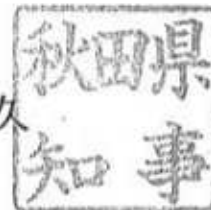 秋田県
知事
久